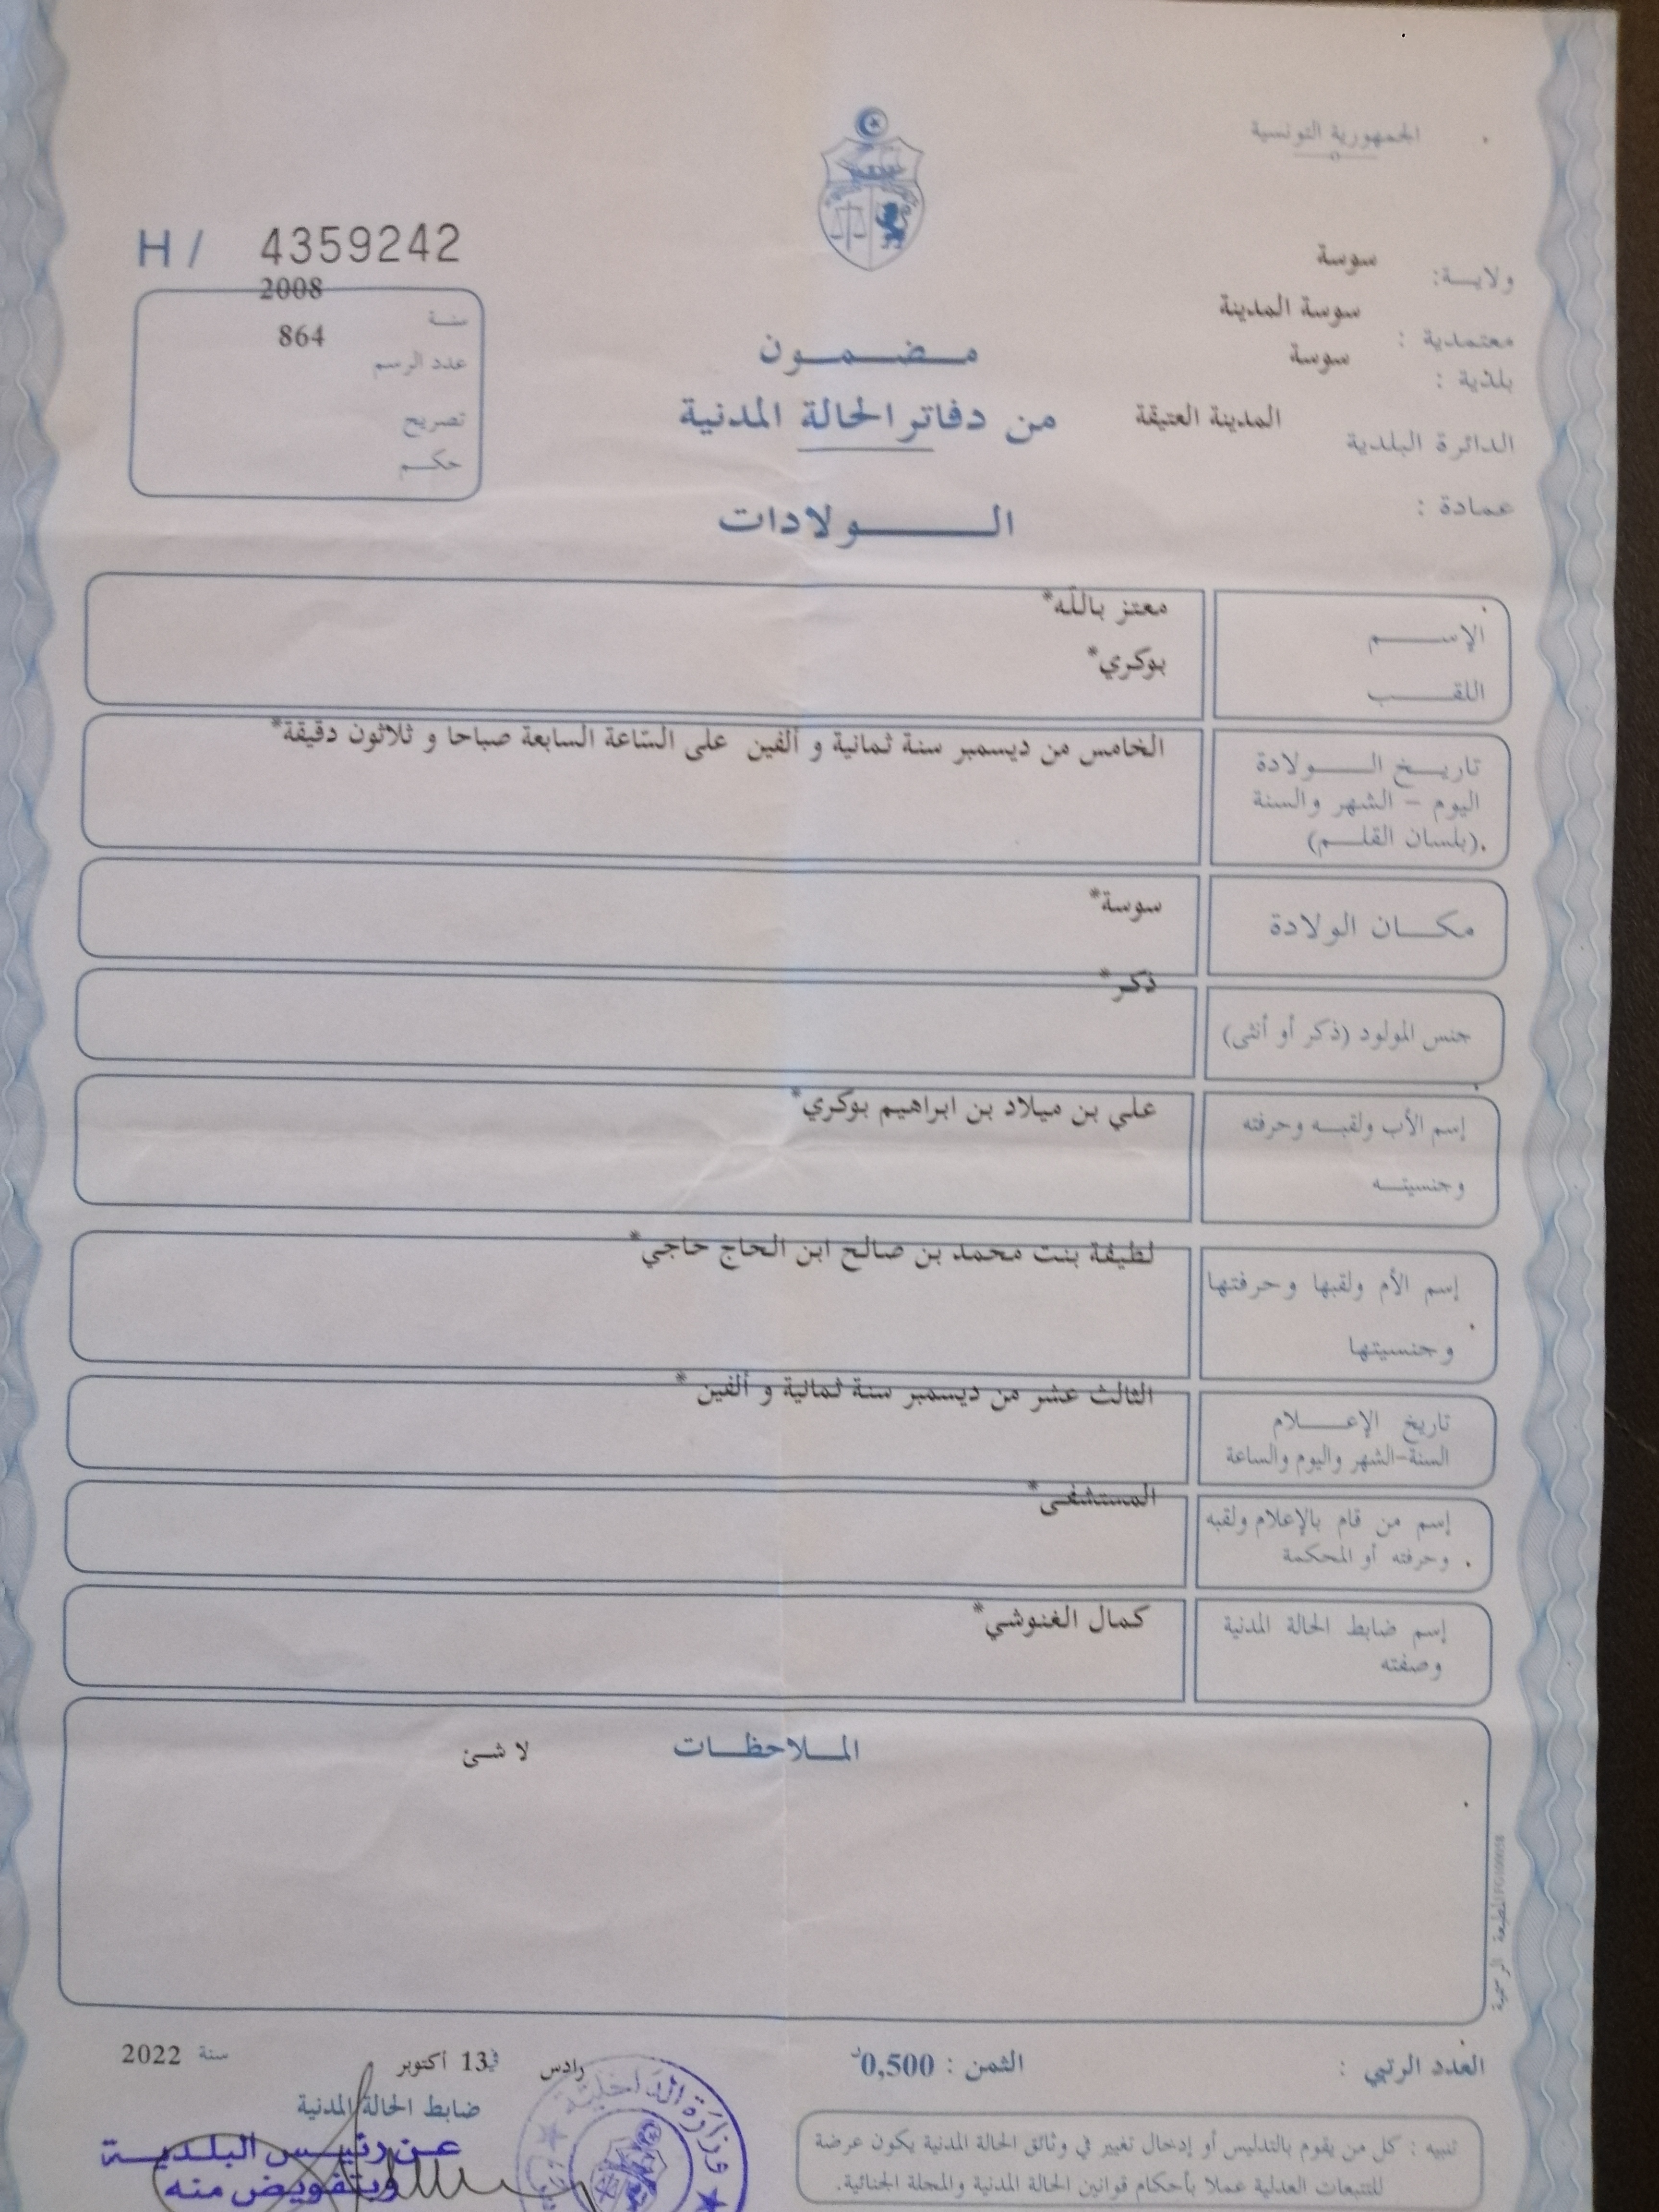 الجمهورية التونسية
ولايـــة: سوسة
معتمدية : سوسة المدينة
بلدية : سوسة
الدائرة البلدية المدينة العتيقة
عمادة :
H / 4359242
سنـة 2008
عدد الرسم 864
تصريح
حكـم
مـضـمـون
من دفاتر الحالة المدنية
الـولادات
الإســـم معتز بالله*
اللقـــب بوكري*
تاريـخ الـــولادة الخامس من ديسمبر سنة ثمانية و ألفين على السّاعة السابعة صباحا و ثلاثون دقيقة*
اليوم - الشهر والسنة
(بلسان القلـم).
مكــان الولادة سوسة*
جنس المولود (ذكر أو أنثى) ذكر*
إسم الأب ولقبـه وحرفته علي بن ميلاد بن ابراهيم بوكري*
وجنسيتـه
إسم الأم ولقبها وحرفتها لطيفة بنت محمد بن صالح ابن الحاج حاجي*
وجنسيتها
تاريخ الإعـــلام الثالث عشر من ديسمبر سنة ثمانية و ألفين *
السنة-الشهر واليوم والساعة
إسم من قام بالإعلام ولقبه المستشفى*
وحرفته أو المحكمة
إسم ضابط الحالة المدنية كمال الغنوشي*
وصفته
المـلاحظـات لا شئ
المطبعة الرسمية
العدد الرتبي : الثمن : 0,500د
رادس في 13 أكتوبر سنة 2022
ضابط الحالة المدنية
عـن رئيـس البـلـديـة
وبتفويض منه
وزارة الداخلية
تنبيه : كل من يقوم بالتدليس أو إدخال تغيير في وثائق الحالة المدنية يكون عرضة
للتتبعات العدلية عملا بأحكام قوانين الحالة المدنية والمجلة الجنائية.